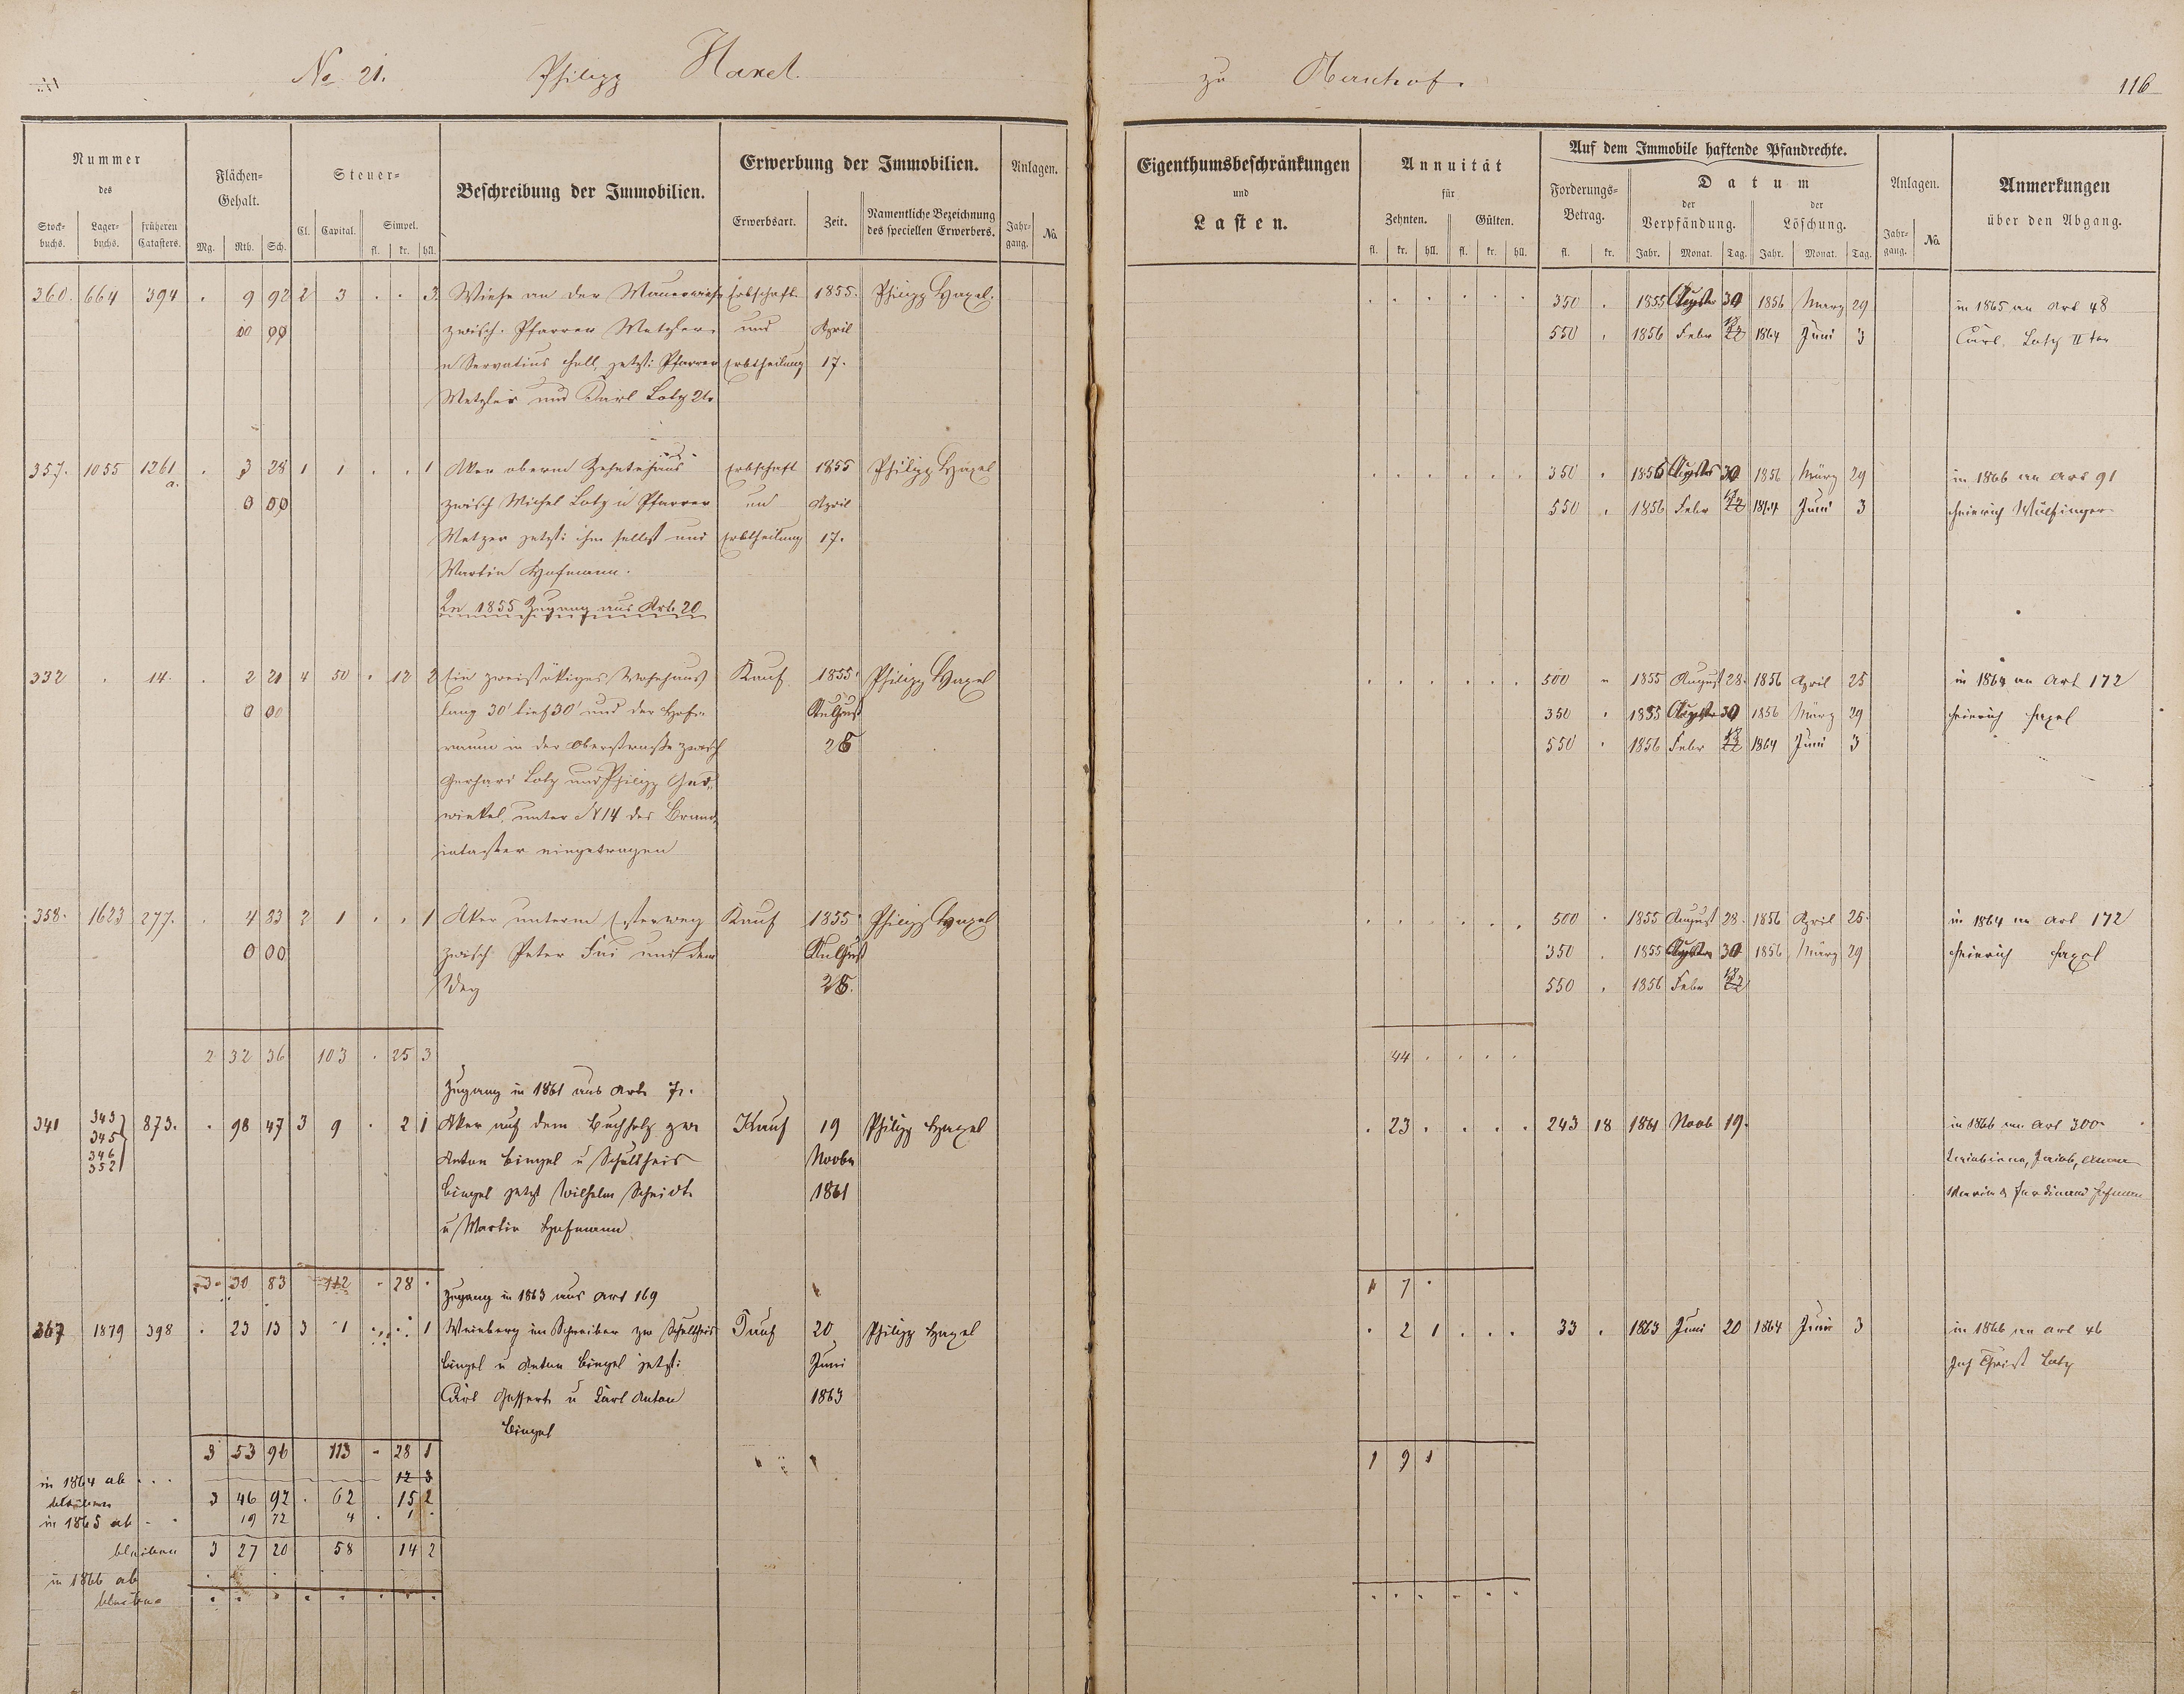 No 21. Philipp Haxel.
zu Obernhof. 116
Nummer des
Stock-buchs. Lager-buchs. früheren Catasters.
Flächen-Gehalt.
Mg. Rth. Sch.
Steuer-
Cl. Capital. Simpel. fl. kr. hll.
Beschreibung der Immobilien.
Erwerbung der Immobilien.
Erwerbsart. Zeit. Namentliche Bezeichnung des speciellen Erwerbers.
Anlagen.
Jahr-gang. No.
Eigenthumsbeschränkungen
und
Lasten.
Annuität
für
Zehnten. Gülten.
fl. kr. hll. fl. kr. hll.
Auf dem Immobile haftende Pfandrechte.
Forderungs-Betrag. fl. kr.
Datum
der Verpfändung. der Löschung.
Jahr. Monat. Tag. Jahr. Monat. Tag.
Anlagen.
Jahr-gang. No.
Anmerkungen
über den Abgang.
360. 664 394 . 9 92 2 3 . . 3. Wiese an der Mauerwiese Erbschaft 1855. Philipp Haxel. 350 . 1855 30 1856 März 29 in 1865 an Art 48
zwisch. Pfarrer Metzler und April 550 . 1856 Febr 1864 Juni 3 Carl Lotz II ter
u Servatius jetzt: Pfarrer Erbtheilung 17.
Metzler und Karl Lotz 2tr
357. 1055 1261 a. . 3 28 1 1 . . 1 Aker oberm Zehntehaus Erbschaft 1855 Philipp Haxel 350 . 1855 30 1856 März 29 in 1866 an Art 91
zwisch Michel Lotz u Pfarrer und April 550 . 1856 Febr 1864 Juni 3 Heinrich Wülfinger
Metzer jetzt: ihm selbst und Erbtheilung 17.
Martin Hofmann.
In 1855 Zugang aus Art. 20
332 . 14. . 2 21 4 50 . 12 2 Ein zweistökiges Wohnhaus Kauf 1855. Philipp Haxel 500 " 1855 August 28. 1856 April 25 in 1864 an Art 172
lang 30' tief 30' und der Hof- August 350 . 1855 30 1856 März 29 Heinrich Haxel
raum in der Oberstraße zwisch 28 550 . 1856 Febr 1864 Juni 3
Gerhard Lotz und Philipp
winkel, unter No 14 des Brand-
cataster eingetragen
358. 1623 277. . 4 33 2 1 . . 1 Aker unterm Kauf 1855. Philipp Haxel 500 . 1855 August 28. 1856 April 25. in 1864 an Art 172
zwisch Peter und dem August 350 . 1855 30 1856 März 29 Heinrich Haxel
Weg 28. 550 . 1856 Febr
2 32 36 103 . 25 3 44 . . . .
Zugang in 1861 aus Art. 71.
341 343 345 346 352 873. . 98 47 3 9 . 2 1 Aker auf dem Buchholz zw. Kauf 19 Philipp Haxel . 23 . . . . 243 18 1861 Novb 19. in 1866 an Art 300
Anton Bingel u Schultheis Novbr Jacob,
Bingel jetzt Wilhelm Scheidt 1861 Ferdinand Hofmann
u Martin Hofmann
3. 30 83 112 . 28 . 1 7 .
Zugang in 1863 aus Art 169
367 1879 398 . 23 13 3 1 . . 1 Weinberg im Schreiber zw Schultheis Tausch 20 Philipp Haxel . 2 1 . . . 33 . 1863 Juni 20 1864 Juni 3 in 1866 an Art 46
Bingel u Anton Bingel jetzt: Juni Christ Lotz
Carl u Karl Anton 1863
Bingel
3 53 96 113 - 28 1 1 9 1
in 1864 ab . . . 12 3
bleiben 3 46 92 . 62 15 2
in 1865 ab . . 19 72 4 . 1 .
bleiben 3 27 20 58 14 2
in 1866 ab
bleiben